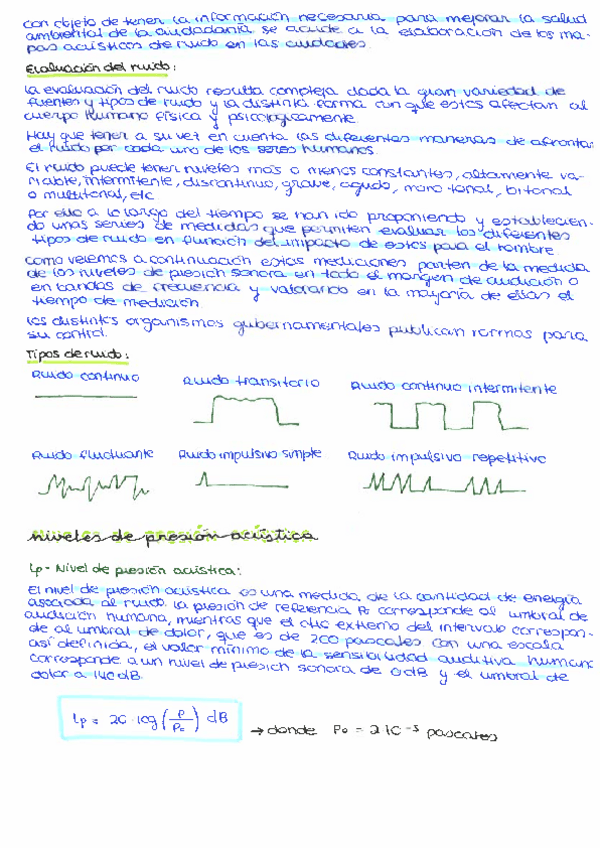 con objeto de tener la información necesaria para mejorar la salud
ambiental de la ciudadanía se acude a la elaboración de los ma-
pas acústicos de ruido en las ciudades.
Evaluación del ruido:
La evaluación del ruido resulta compleja dada la gran variedad de
fuentes y tipos de ruido y la distinta forma con que estos afectan al
cuerpo humano física y psicológicamente
Hay que tener a su vez en cuenta las diferentes maneras de afrontar
el ruido por cada uno de los seres humanos.
El ruido puede tener niveles más o menos constantes, altamente va-
riable, intermitente, discontinuo, grave, agudo, mono tonal, bitonal
o multitonal, etc
Por ello a lo largo del tiempo se han ido proponiendo y establecien-
do unas series de medidas que permiten evaluar los diferentes
tipos de ruido en función del impacto de estos para el hombre
como veremos a continuación estas mediciones parten de la medida
de los niveles de presión sonora en todo el margen de audición o
en bandas de frecuencia y valorando en la mayoría de ellas el
tiempo de medición
Los distintos organismos gubernamentales publican normas para
su control.
Tipos de ruido:
Ruido continuo Ruido transitorio Ruido continuo intermitente
Ruido fluctuante Ruido impulsivo simple Ruido impulsivo repetitivo
Niveles de presión acústica
Lp - Nivel de presión acústica:
El nivel de presión acústica es una medida de la cantidad de energía
asociada al ruido. La presión de referencia Po corresponde al umbral de
audición humana, mientras que el otro extremo del intervalo correspon-
de al umbral de dolor, que es de 200 pascales con una escala
así definida, el valor mínimo de la sensibilidad auditiva humana
corresponde a un nivel de presión sonora de 0 dB y el umbral de
dolor a 140 dB.
Lp = 20 · log (P/Po) dB → donde Po = 2·10⁻⁵ pascales